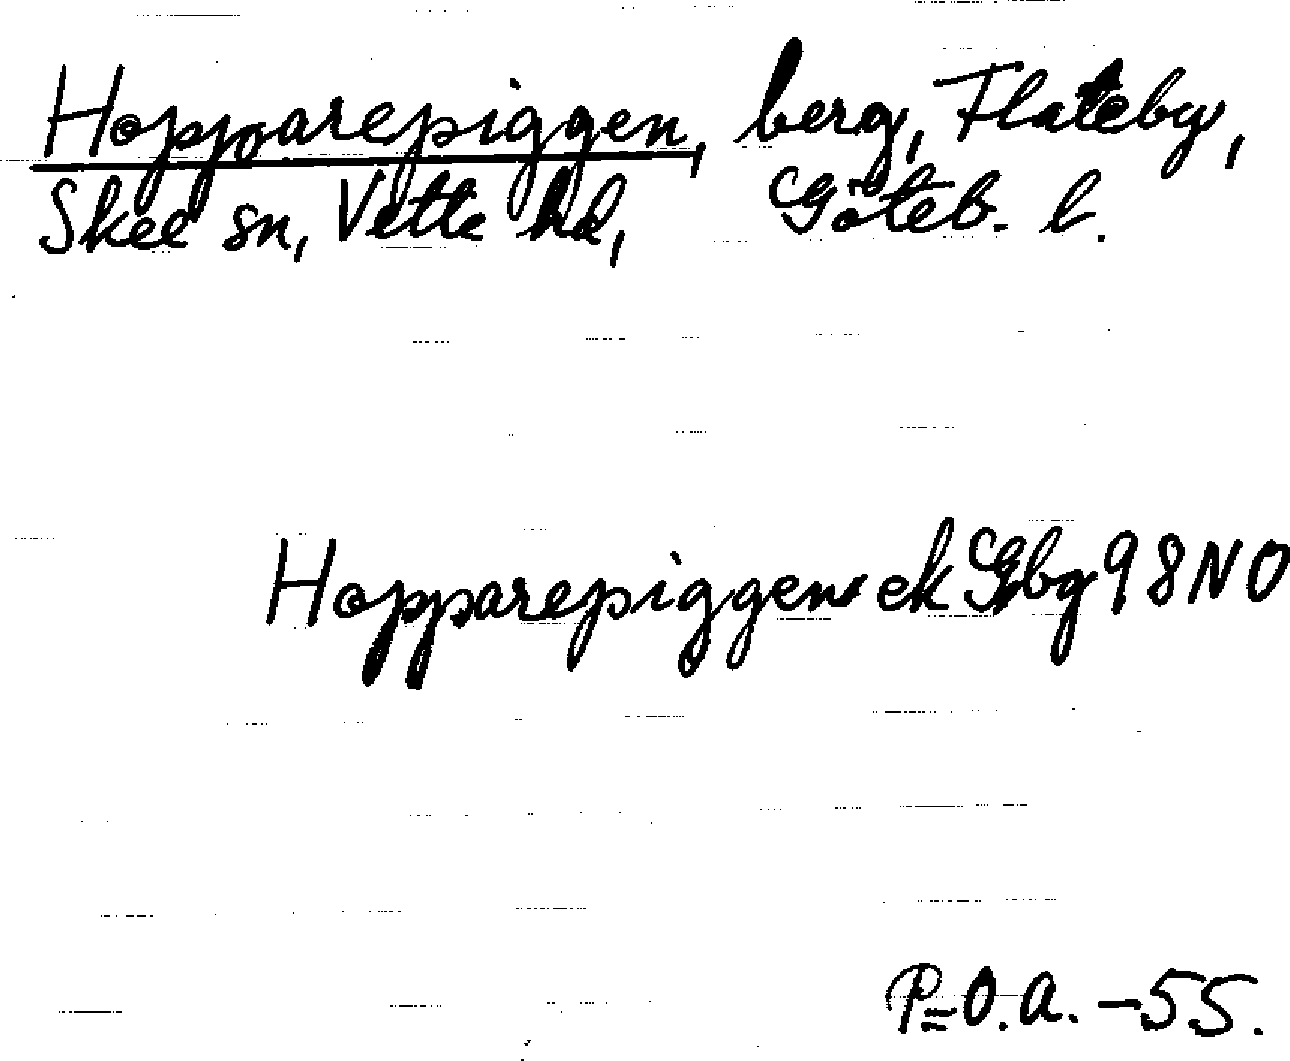 Hopparepiggen, berg, Flateby,
Skee sn, Vette hd, Göteb. l.
Hopparepiggen ek Gbg 98 NO
P=O.A. -55.